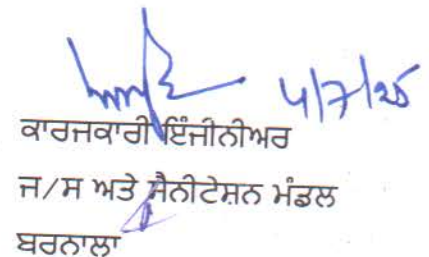 4/7/25
ਕਾਰਜਕਾਰੀ ਇੰਜੀਨੀਅਰ
ਜ/ਸ ਅਤੇ ਸੈਨੀਟੇਸ਼ਨ ਮੰਡਲ
ਬਰਨਾਲਾ